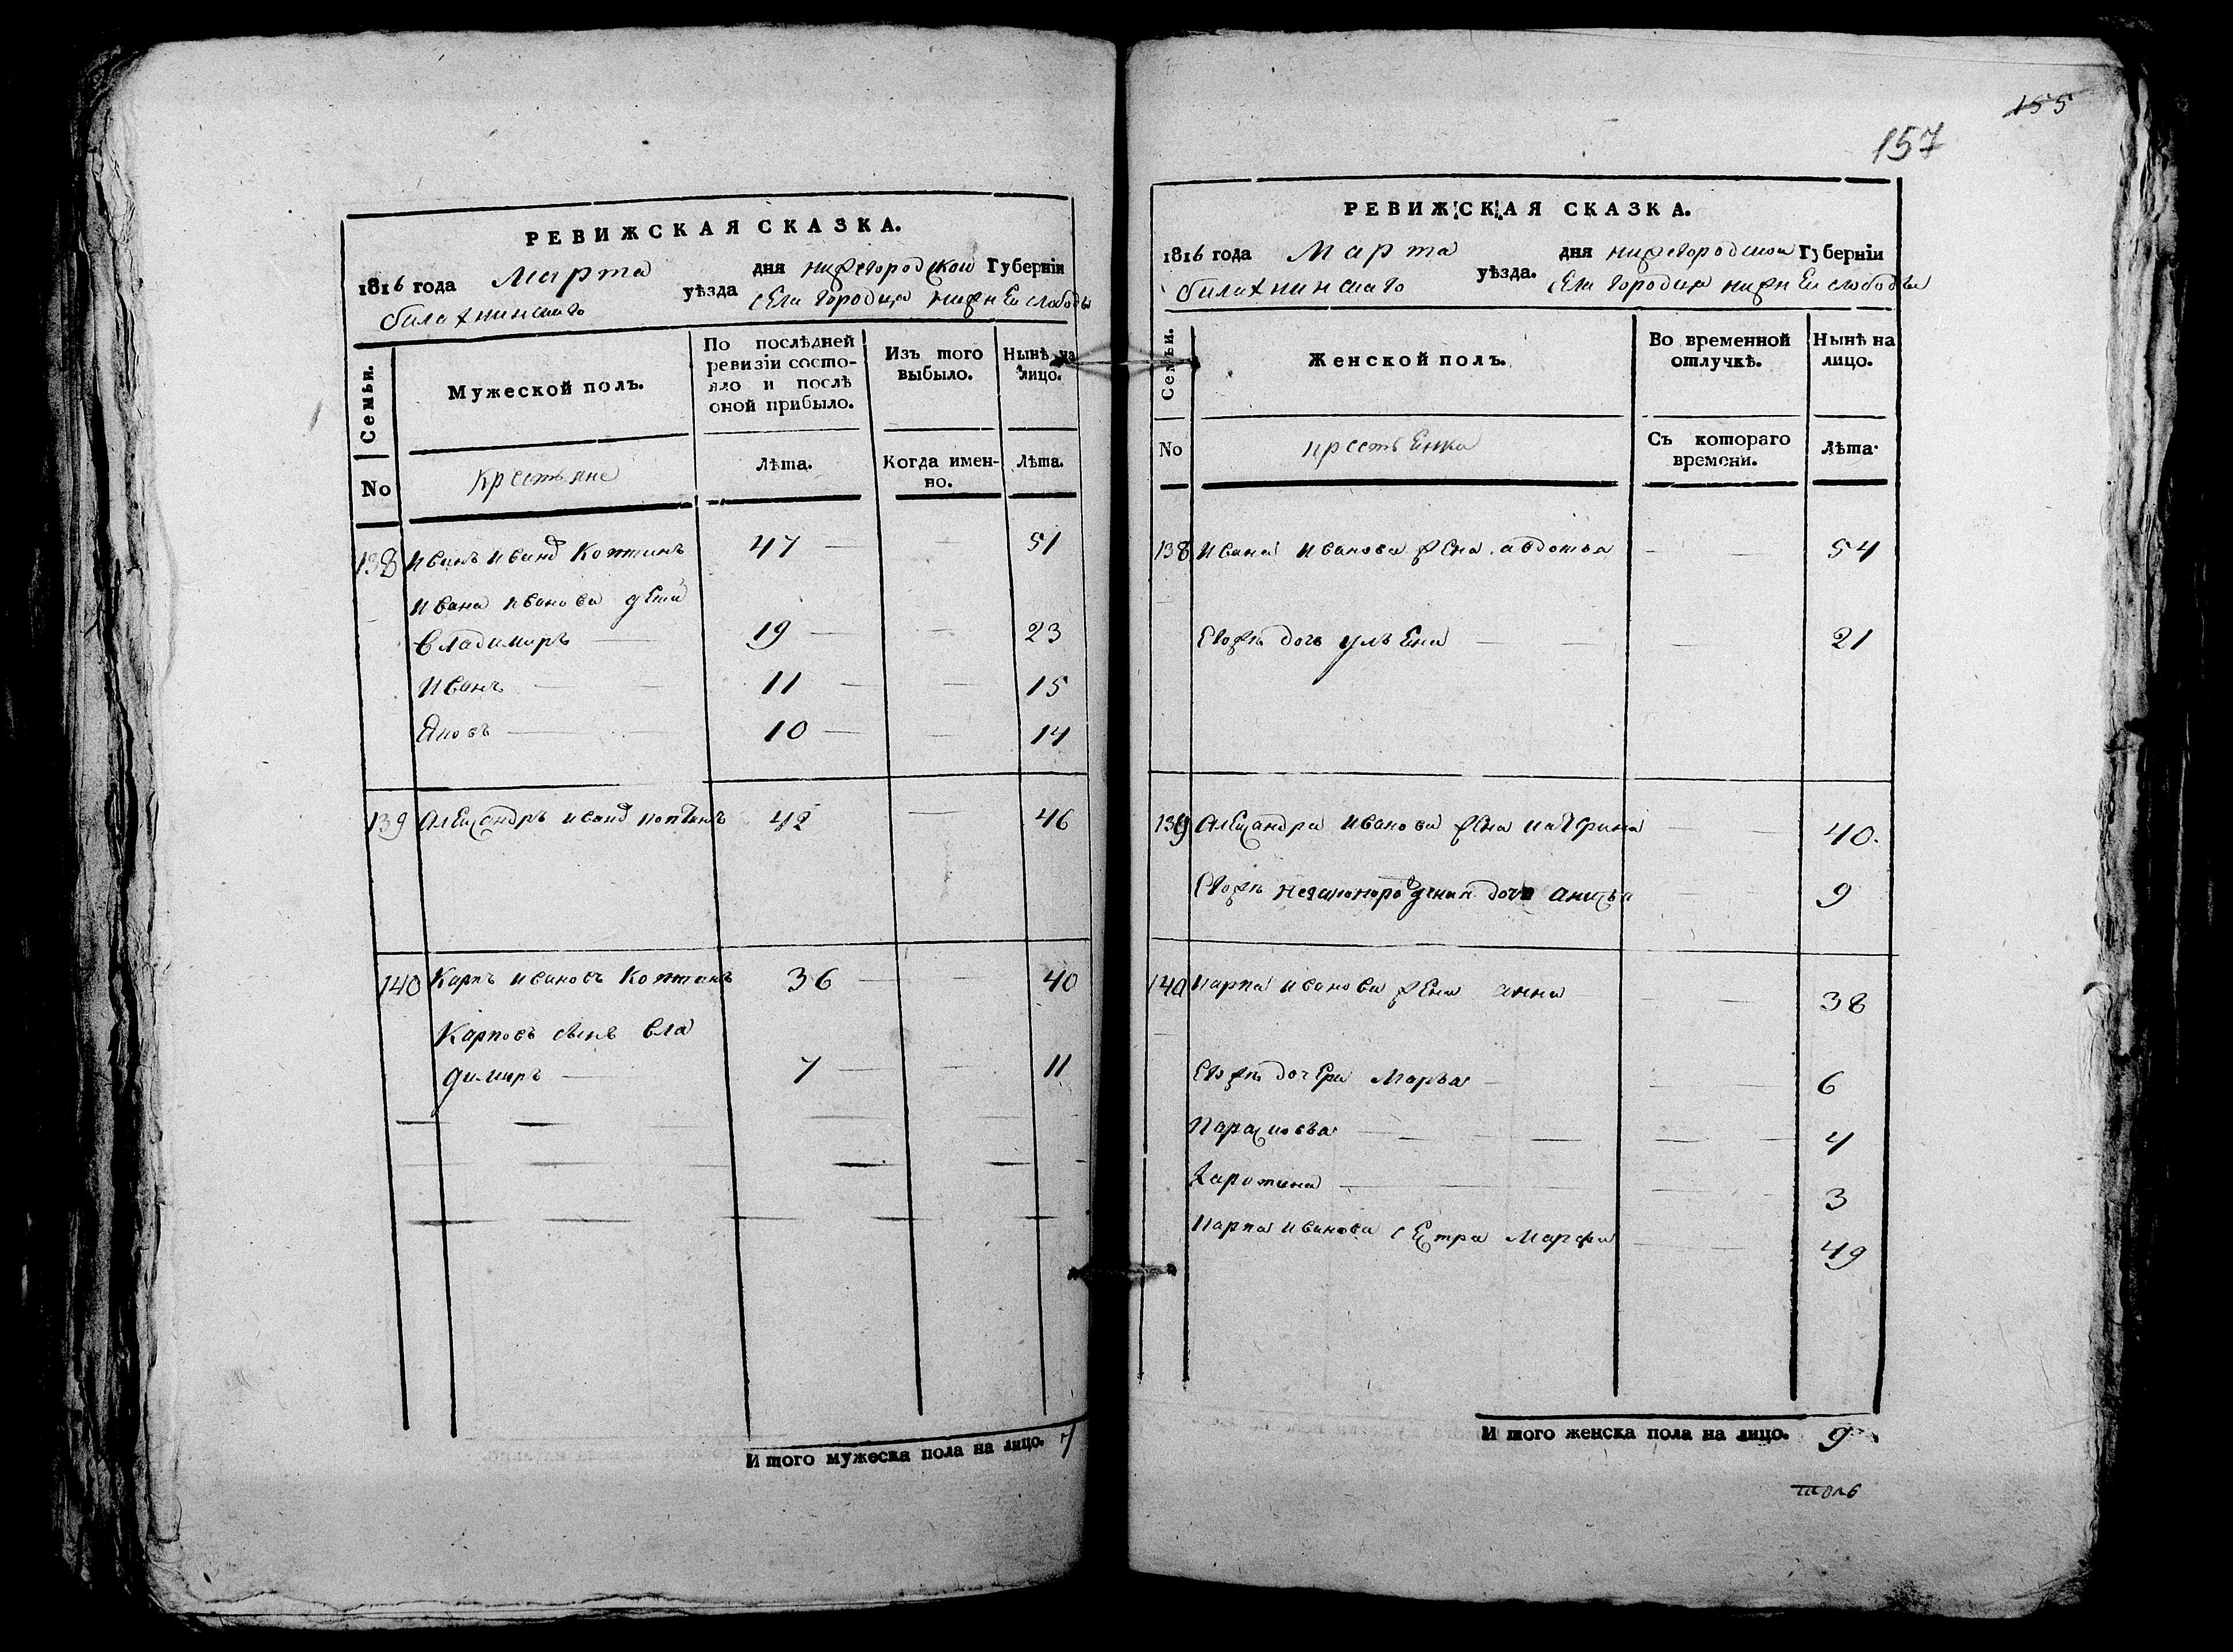 РЕВИЖСКАЯ СКАЗКА.
1816 года Марта дня нижегородской Губерніи
балахнинскаго уѣзда села городца нижней слободы
Семьи.
Мужеской полъ.
По послѣдней ревизіи состояло и послѣ оной прибыло.
Изъ того выбыло.
Нынѣ на лицо.
No
крестьяне
Лѣта.
Когда именно.
Лѣта.
138 Иванъ иванд Коптинъ 47 — — 51
ивана иванова дети
владимиръ — 19 — — 23
Иванъ — — 11 — — 15
Яковъ — — 10 — — 14
139 Александръ иванд коптинъ 42 — 46
140 Карпъ ивановъ Коптинъ 36 — — 40
Карповъ сынъ вла
димиръ — 7 — — 11
И того мужеска пола на лицо. 7
155
157
РЕВИЖСКАЯ СКАЗКА.
1816 года Марта дня нижегородской Губерніи
балахнинскаго уѣзда. села городца нижней слободы
Семьи.
Женской полъ.
Во временной отлучкѣ.
Нынѣ на лицо.
No
крестьянки
Съ котораго времени.
Лѣта.
138 Ивана иванова жена авдотья — — 54
Евожъ дочь ульена — — — 21
139 Александра иванова жена катерина — — 40.
Евожъ незаконорожденная дочь — — 9
140 карпа иванова жена анна — — 38
Евожъ дочери Марья — — — 6
Парасковья — — — 4
Харитина — — — 3
Карпа иванова сестра Марфа — — 49
И того женска пола на лицо. 9